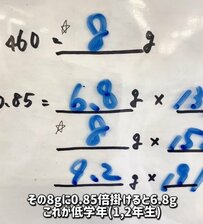 460 = ☆ 8 g
0.85 = 6.8 g ×
☆ 8 g × 15
9.2 g ×
その8gに0.85倍掛けると6.8g
これが低学年(1,2年生)